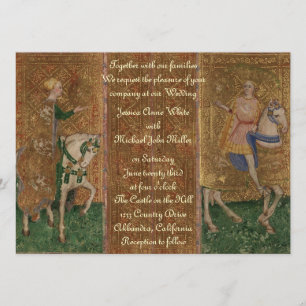 Together with our families
We request the pleasure of your
company at our Wedding
Jessica Anne White
with
Michael John Miller
on Saturday
June twenty third
at four o'clock
The Castle on the Hill
1233 Country Drive
California
Reception to follow